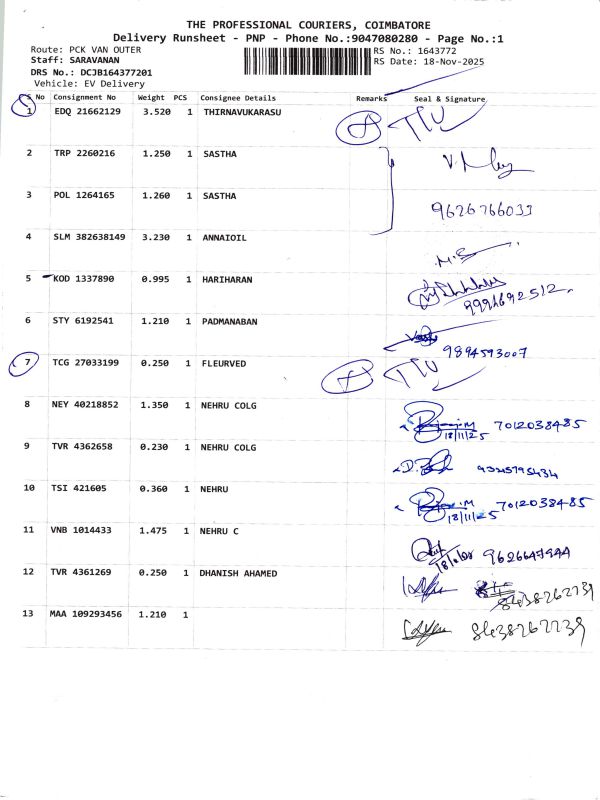 THE PROFESSIONAL COURIERS, COIMBATORE
Delivery Runsheet - PNP - Phone No.:9047080280 - Page No.:1
Route: PCK VAN OUTER RS No.: 1643772
Staff: SARAVANAN RS Date: 18-Nov-2025
DRS No.: DCJB164377201
Vehicle: EV Delivery
S No Consignment No Weight PCS Consignee Details Remarks Seal & Signature
1 EDQ 21662129 3.520 1 THIRNAVUKARASU
2 TRP 2260216 1.250 1 SASTHA
3 POL 1264165 1.260 1 SASTHA 9626766033
4 SLM 382638149 3.230 1 ANNAIOIL
5 KOD 1337890 0.995 1 HARIHARAN
6 STY 6192541 1.210 1 PADMANABAN 9894593007
7 TCG 27033199 0.250 1 FLEURVED
8 NEY 40218852 1.350 1 NEHRU COLG 18/11/25 7012038485
9 TVR 4362658 0.230 1 NEHRU COLG
10 TSI 421605 0.360 1 NEHRU 18/11/25 7012038485
11 VNB 1014433 1.475 1 NEHRU C
12 TVR 4361269 0.250 1 DHANISH AHAMED 8438262239
13 MAA 109293456 1.210 1 8438262239